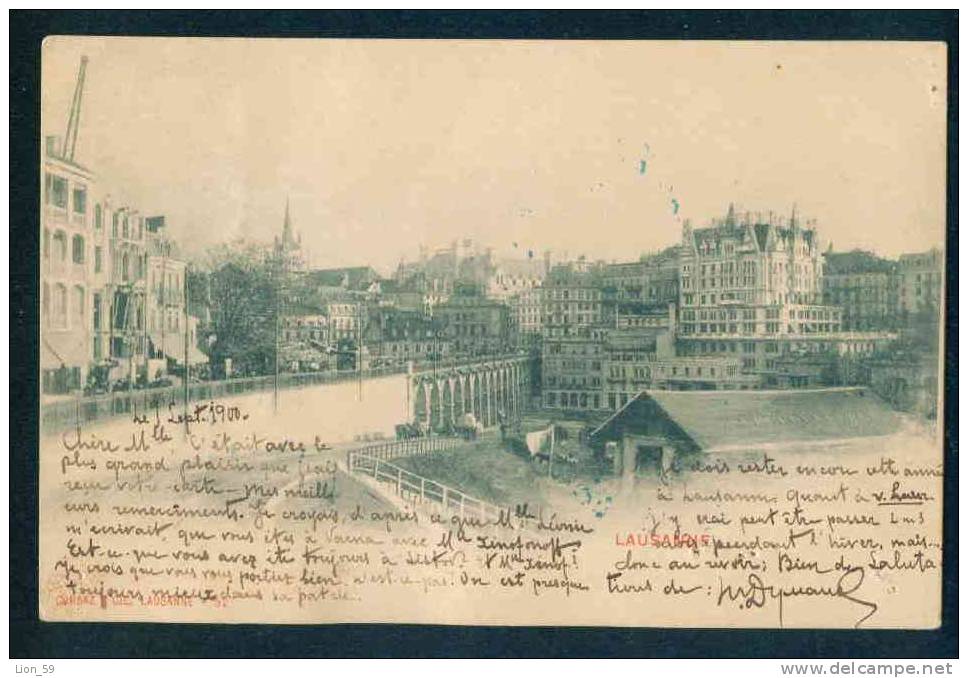 Le 1 Sept. 1900.
Chère Mlle, C'était avec le
plus grand plaisir que j'ai
reçu votre carte - Mes meill
eurs remerciments. Je croyais, d'après ce que Mlle Léonie
m'écrivait, que vous êtes à Varna avec Me
Est-ce que vous avez été toujours à Sistov?
Je crois que vous vous portiez bien, n'est-ce pas? On est presque
toujours mieux dans sa patrie.
Je dois rester encore cette année
à Lausanne. Quant à
j'y irai peut être passer
pendant l'hiver, mais
donc au revoir; Bien de Saluta
tions de:
LAUSANNE
LAUSANNE
Lion_59
www.delcampe.net